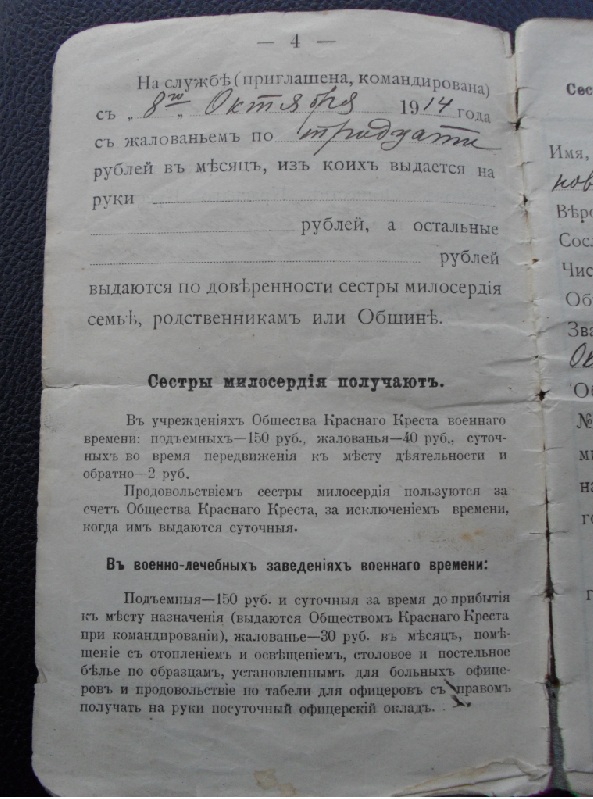 — 4 —
На службѣ (приглашена, командирована)
съ „ 8го „ Октября 1914 года
съ жалованьемъ по тридцати
рублей въ мѣсяцъ, изъ коихъ выдается на
руки
рублей, а остальные
рублей
выдаются по довѣренности сестры милосердія
семьѣ, родственникамъ или Общинѣ.
Сестры милосердія получаютъ.
Въ учрежденіяхъ Общества Краснаго Креста военнаго
времени: подъемныхъ—150 руб., жалованья—40 руб., суточ-
ныхъ во время передвиженія къ мѣсту дѣятельности и
обратно—2 руб.
Продовольствіемъ сестры милосердія пользуются за
счетъ Общества Краснаго Креста, за исключеніемъ времени,
когда имъ выдаются суточныя.
Въ военно-лечебныхъ заведеніяхъ военнаго времени:
Подъемныя—150 руб. и суточныя за время до прибытія
къ мѣсту назначенія (выдаются Обществомъ Краснаго Креста
при командированіи), жалованье—30 руб. въ мѣсяцъ, помѣ-
щеніе съ отопленіемъ и освѣщеніемъ, столовое и постельное
бѣлье по образцамъ, установленнымъ для больныхъ офице-
ровъ и продовольствіе по табели для офицеровъ съ правомъ
получать на руки посуточный офицерскій окладъ.
Сес
Имя,
нов
Вѣро
Сосл
Чис
Об
Зва
Ок
Об
№
ми
на
го